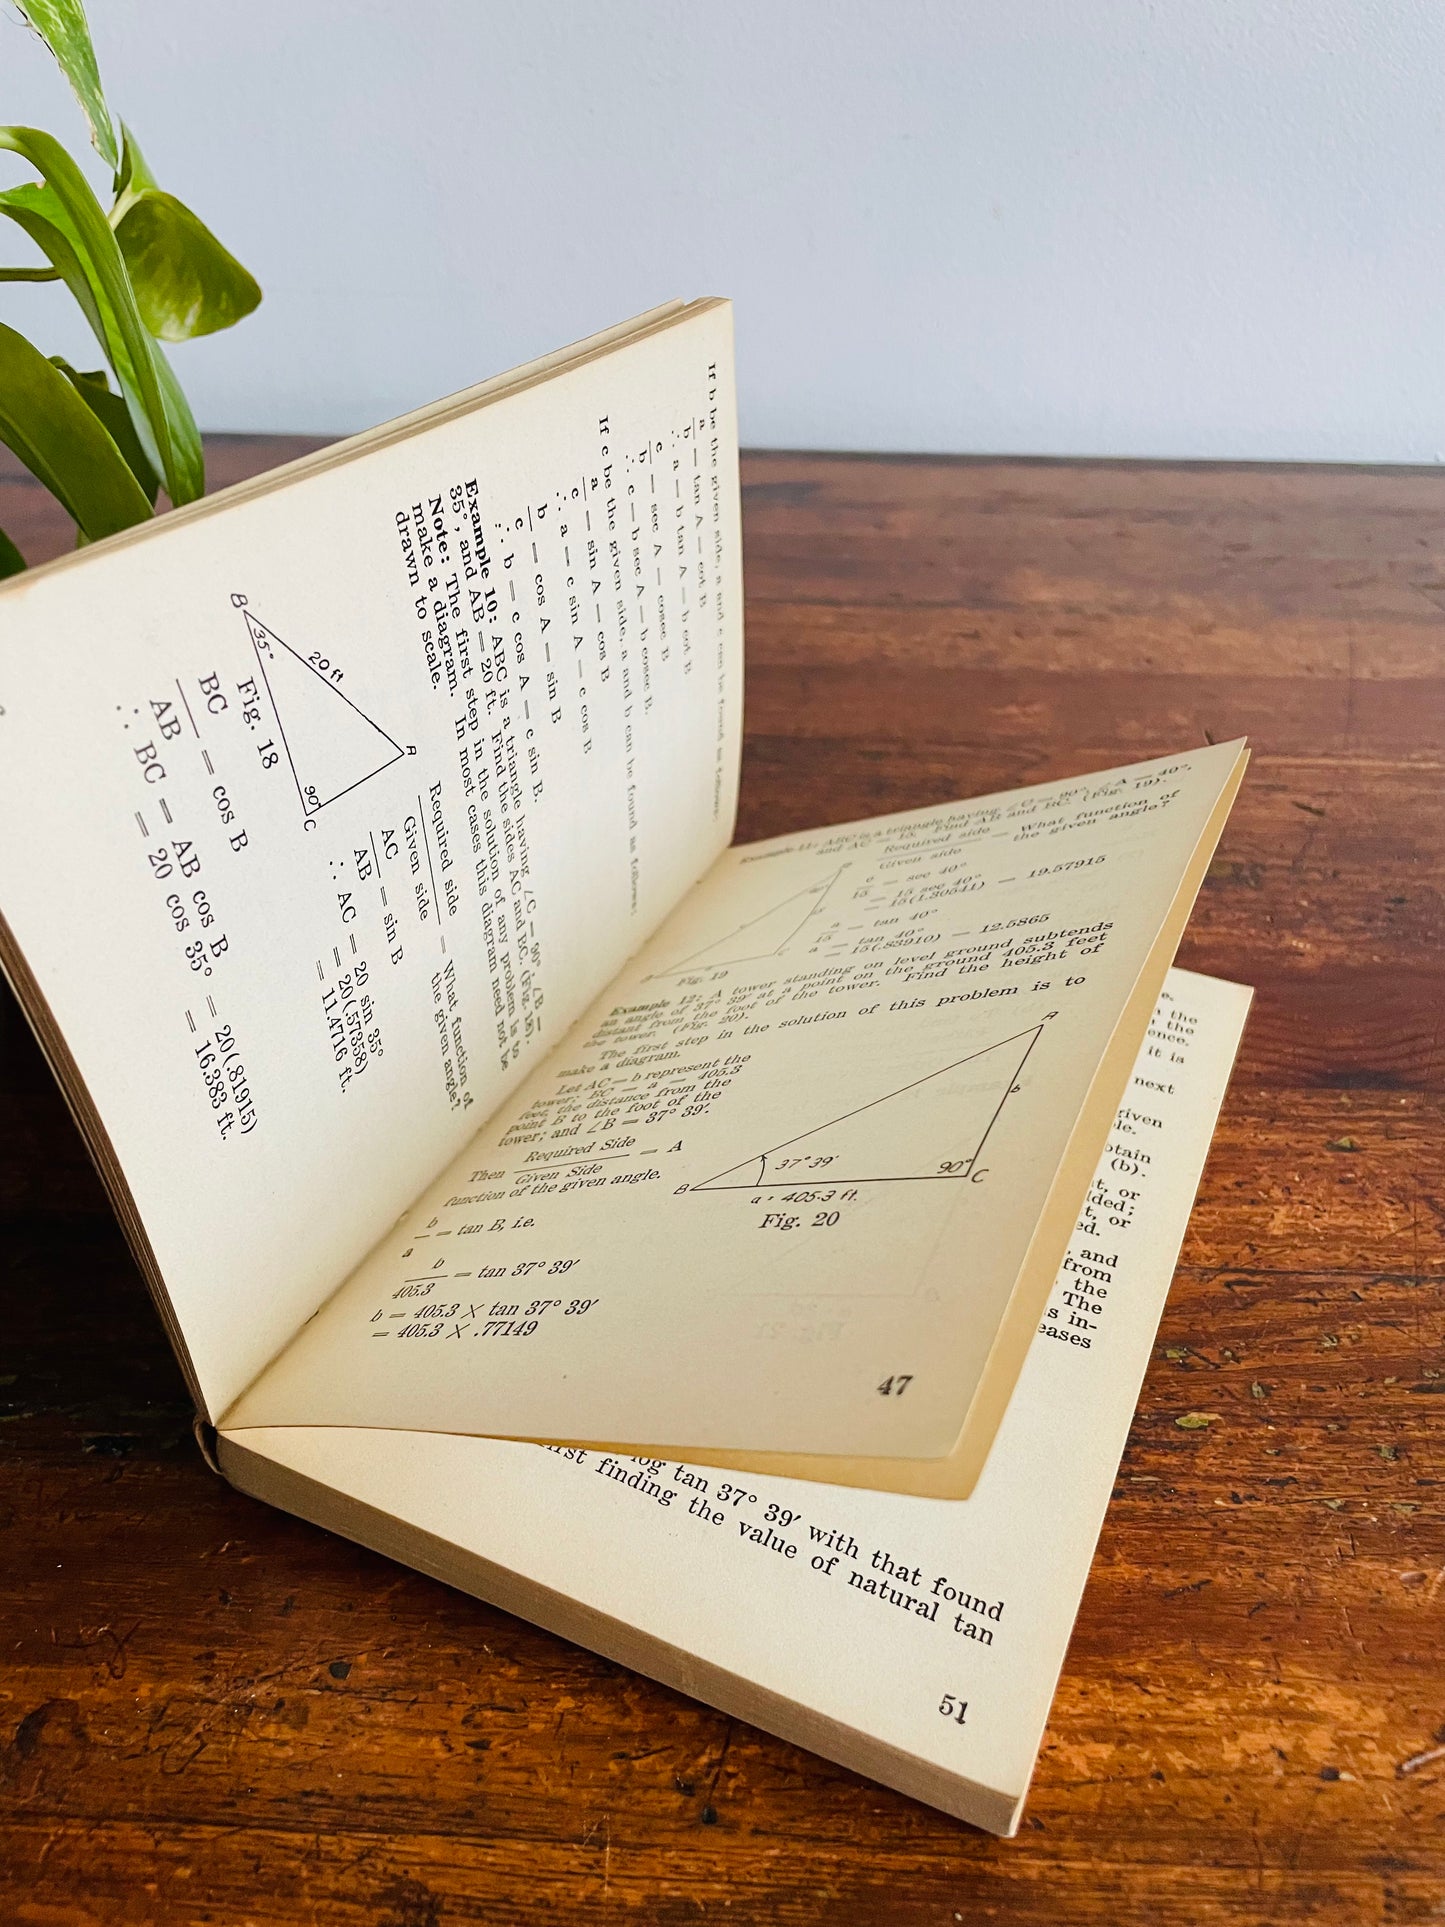 If b be the given side, a and c can be found as follows:
a
b
= tan A = cot B
∴ a = b tan A = b cot B
c
b
= sec A = cosec B
∴ c = b sec A = b cosec B.
If c be the given side, a and b can be found as follows:
a
c
= sin A = cos B
∴ a = c sin A = c cos B
b
c
= cos A = sin B
∴ b = c cos A = c sin B.
Example 10: ABC is a triangle having ∠C = 90° ∠B =
35°, and AB = 20 ft. Find the sides AC and BC. (Fig. 18).
Note: The first step in the solution of any problem is to
make a diagram. In most cases this diagram need not be
drawn to scale.
B
35°
20 ft
A
90°
C
Fig. 18
Required side
Given side
= What function of
the given angle?
AC
AB
= sin B
∴ AC = 20 sin 35°
= 20(.57358)
= 11.4716 ft.
BC
AB
= cos B
∴ BC = AB cos B
= 20 cos 35° = 20(.81915)
= 16.383 ft.
Example 11: ABC is a triangle having ∠C = 90°, ∠A = 40°,
and AC = 15. Find AB and BC. (Fig. 19).
Required side
Given side
= What function of
the given angle?
c
15
= sec 40°
= 15 sec 40°
= 15(1.30541) = 19.57915
a
15
= tan 40°
a = tan 40°
= 15(.83910) = 12.5865
Fig. 19
Example 12: A tower standing on level ground subtends
an angle of 37° 39′ at a point on the ground 405.3 feet
distant from the foot of the tower. Find the height of
the tower. (Fig. 20).
The first step in the solution of this problem is to
make a diagram.
Let AC = b represent the
tower; BC = a = 405.3
feet, the distance from the
point B to the foot of the
tower; and ∠B = 37° 39′.
Then
Required Side
Given Side
= A
function of the given angle.
b
a
= tan B, i.e.
b
405.3
= tan 37° 39′
b = 405.3 × tan 37° 39′
= 405.3 × .77149
A
b
B
37° 39′
90°
C
a = 405.3 ft.
Fig. 20
47
the
the
ence.
it is
next
riven
le.
otain
(b).
t, or
lded;
t, or
ed.
, and
from
the
The
s in-
eases
log tan 37° 39′ with that found
first finding the value of natural tan
51